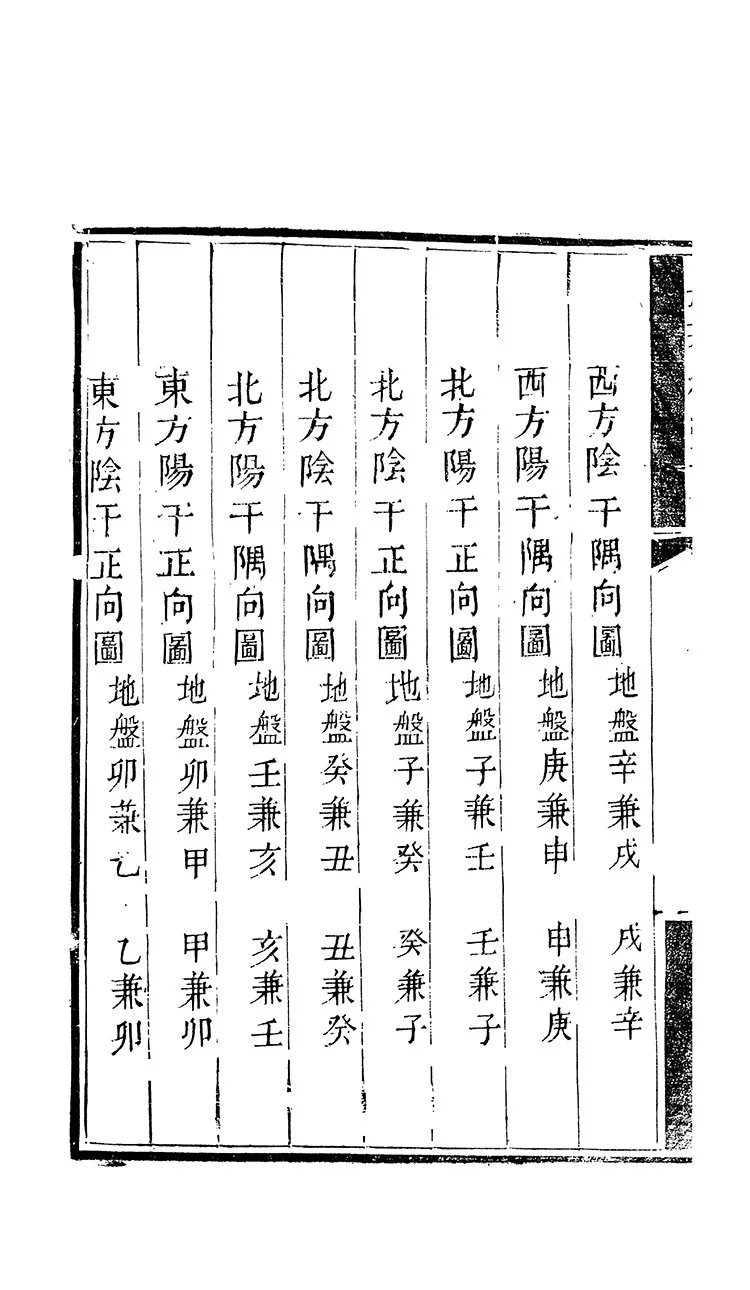 西方陰干隅向圖地盤辛兼戌 戌兼辛
西方陽干隅向圖地盤庚兼申 申兼庚
北方陽干正向圖地盤子兼壬 壬兼子
北方陰干正向圖地盤子兼癸 癸兼子
北方陰干隅向圖地盤癸兼丑 丑兼癸
北方陽干隅向圖地盤壬兼亥 亥兼壬
東方陽干正向圖地盤卯兼甲 甲兼卯
東方陰干正向圖地盤卯兼乙 乙兼卯